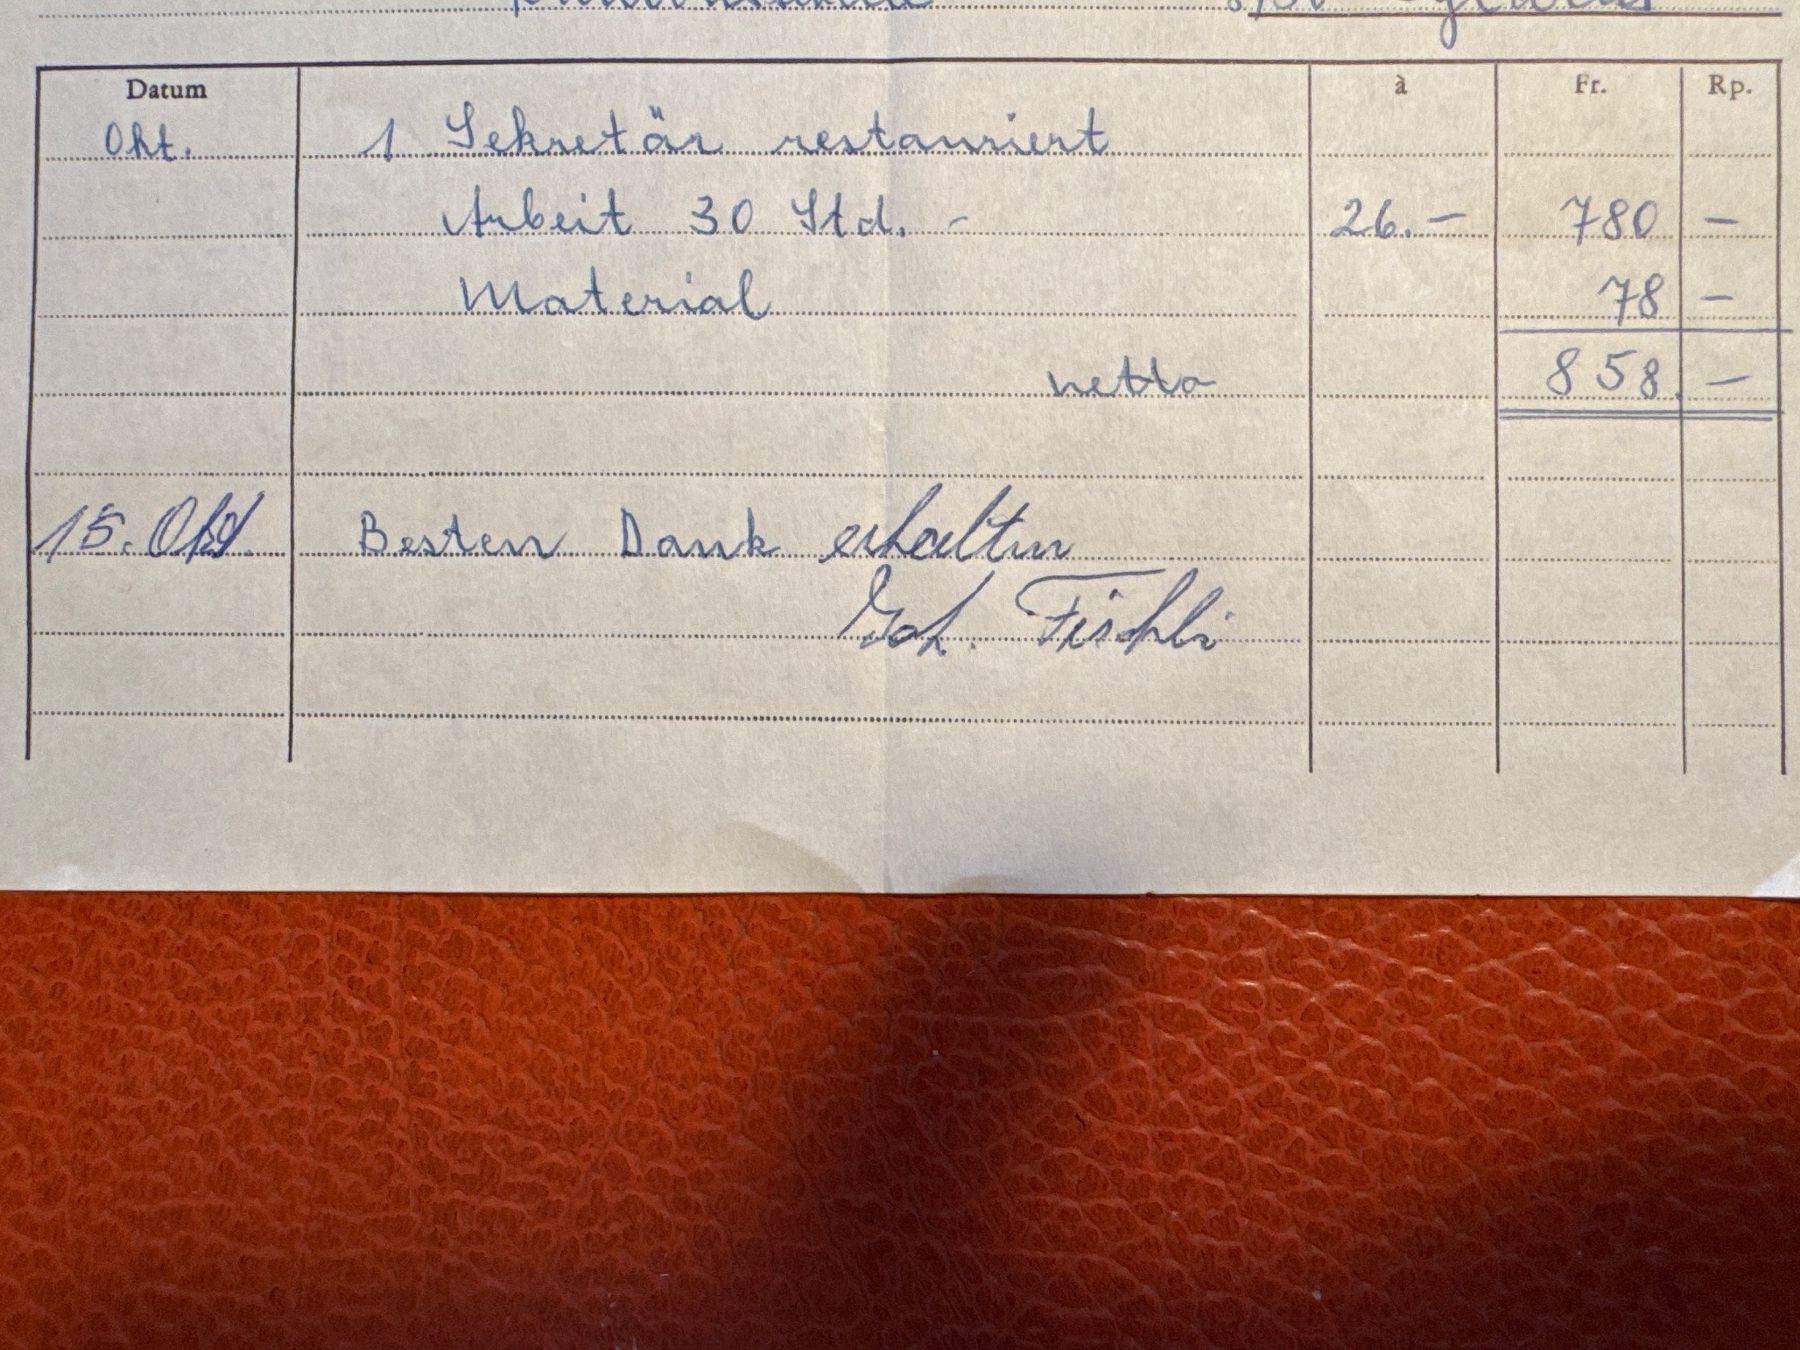 Datum à Fr. Rp.
Okt. 1 Sekretär restauriert
Arbeit 30 Std. - 26.- 780 -
Material 78 -
netto 858. -
15. Okt. Besten Dank erhalten
Fischli